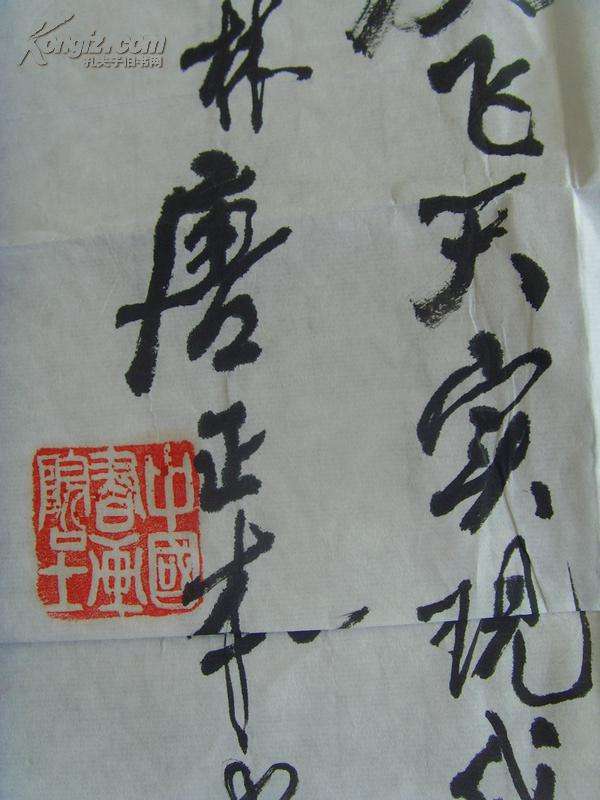 飞天实现
林唐正
中國
書畫
院
Kongfz.com
孔夫子旧书网